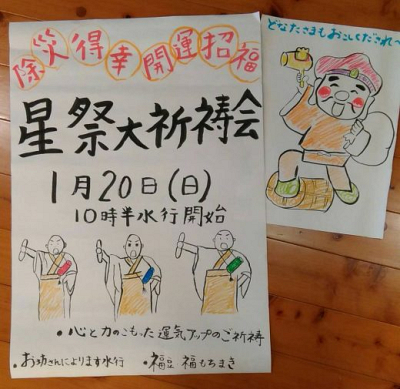 除災得幸開運招福
星祭大祈祷会
1月20日(日)
10時半水行開始
・心と力のこもった運気アップのご祈祷
・お坊さんによります水行
・福豆 福もちまき
どなたさまもおこしくだされ〜